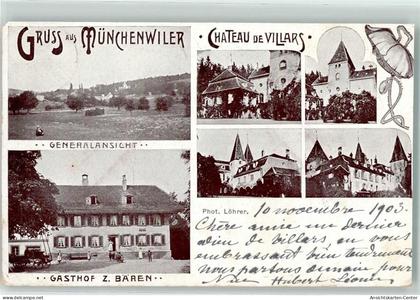 GRUSS AUS MÜNCHENWILER
CHATEAU DE VILLARS
GENERALANSICHT
GASTHOF Z. BÄREN
Phot. Löhrer.
10 novembre 1903.
Chère amie un dernier
adieu de villars en vous
embrassant bien
Nous partons demain pour
Nice Hubert
www.Ansichtskarten-Center.de